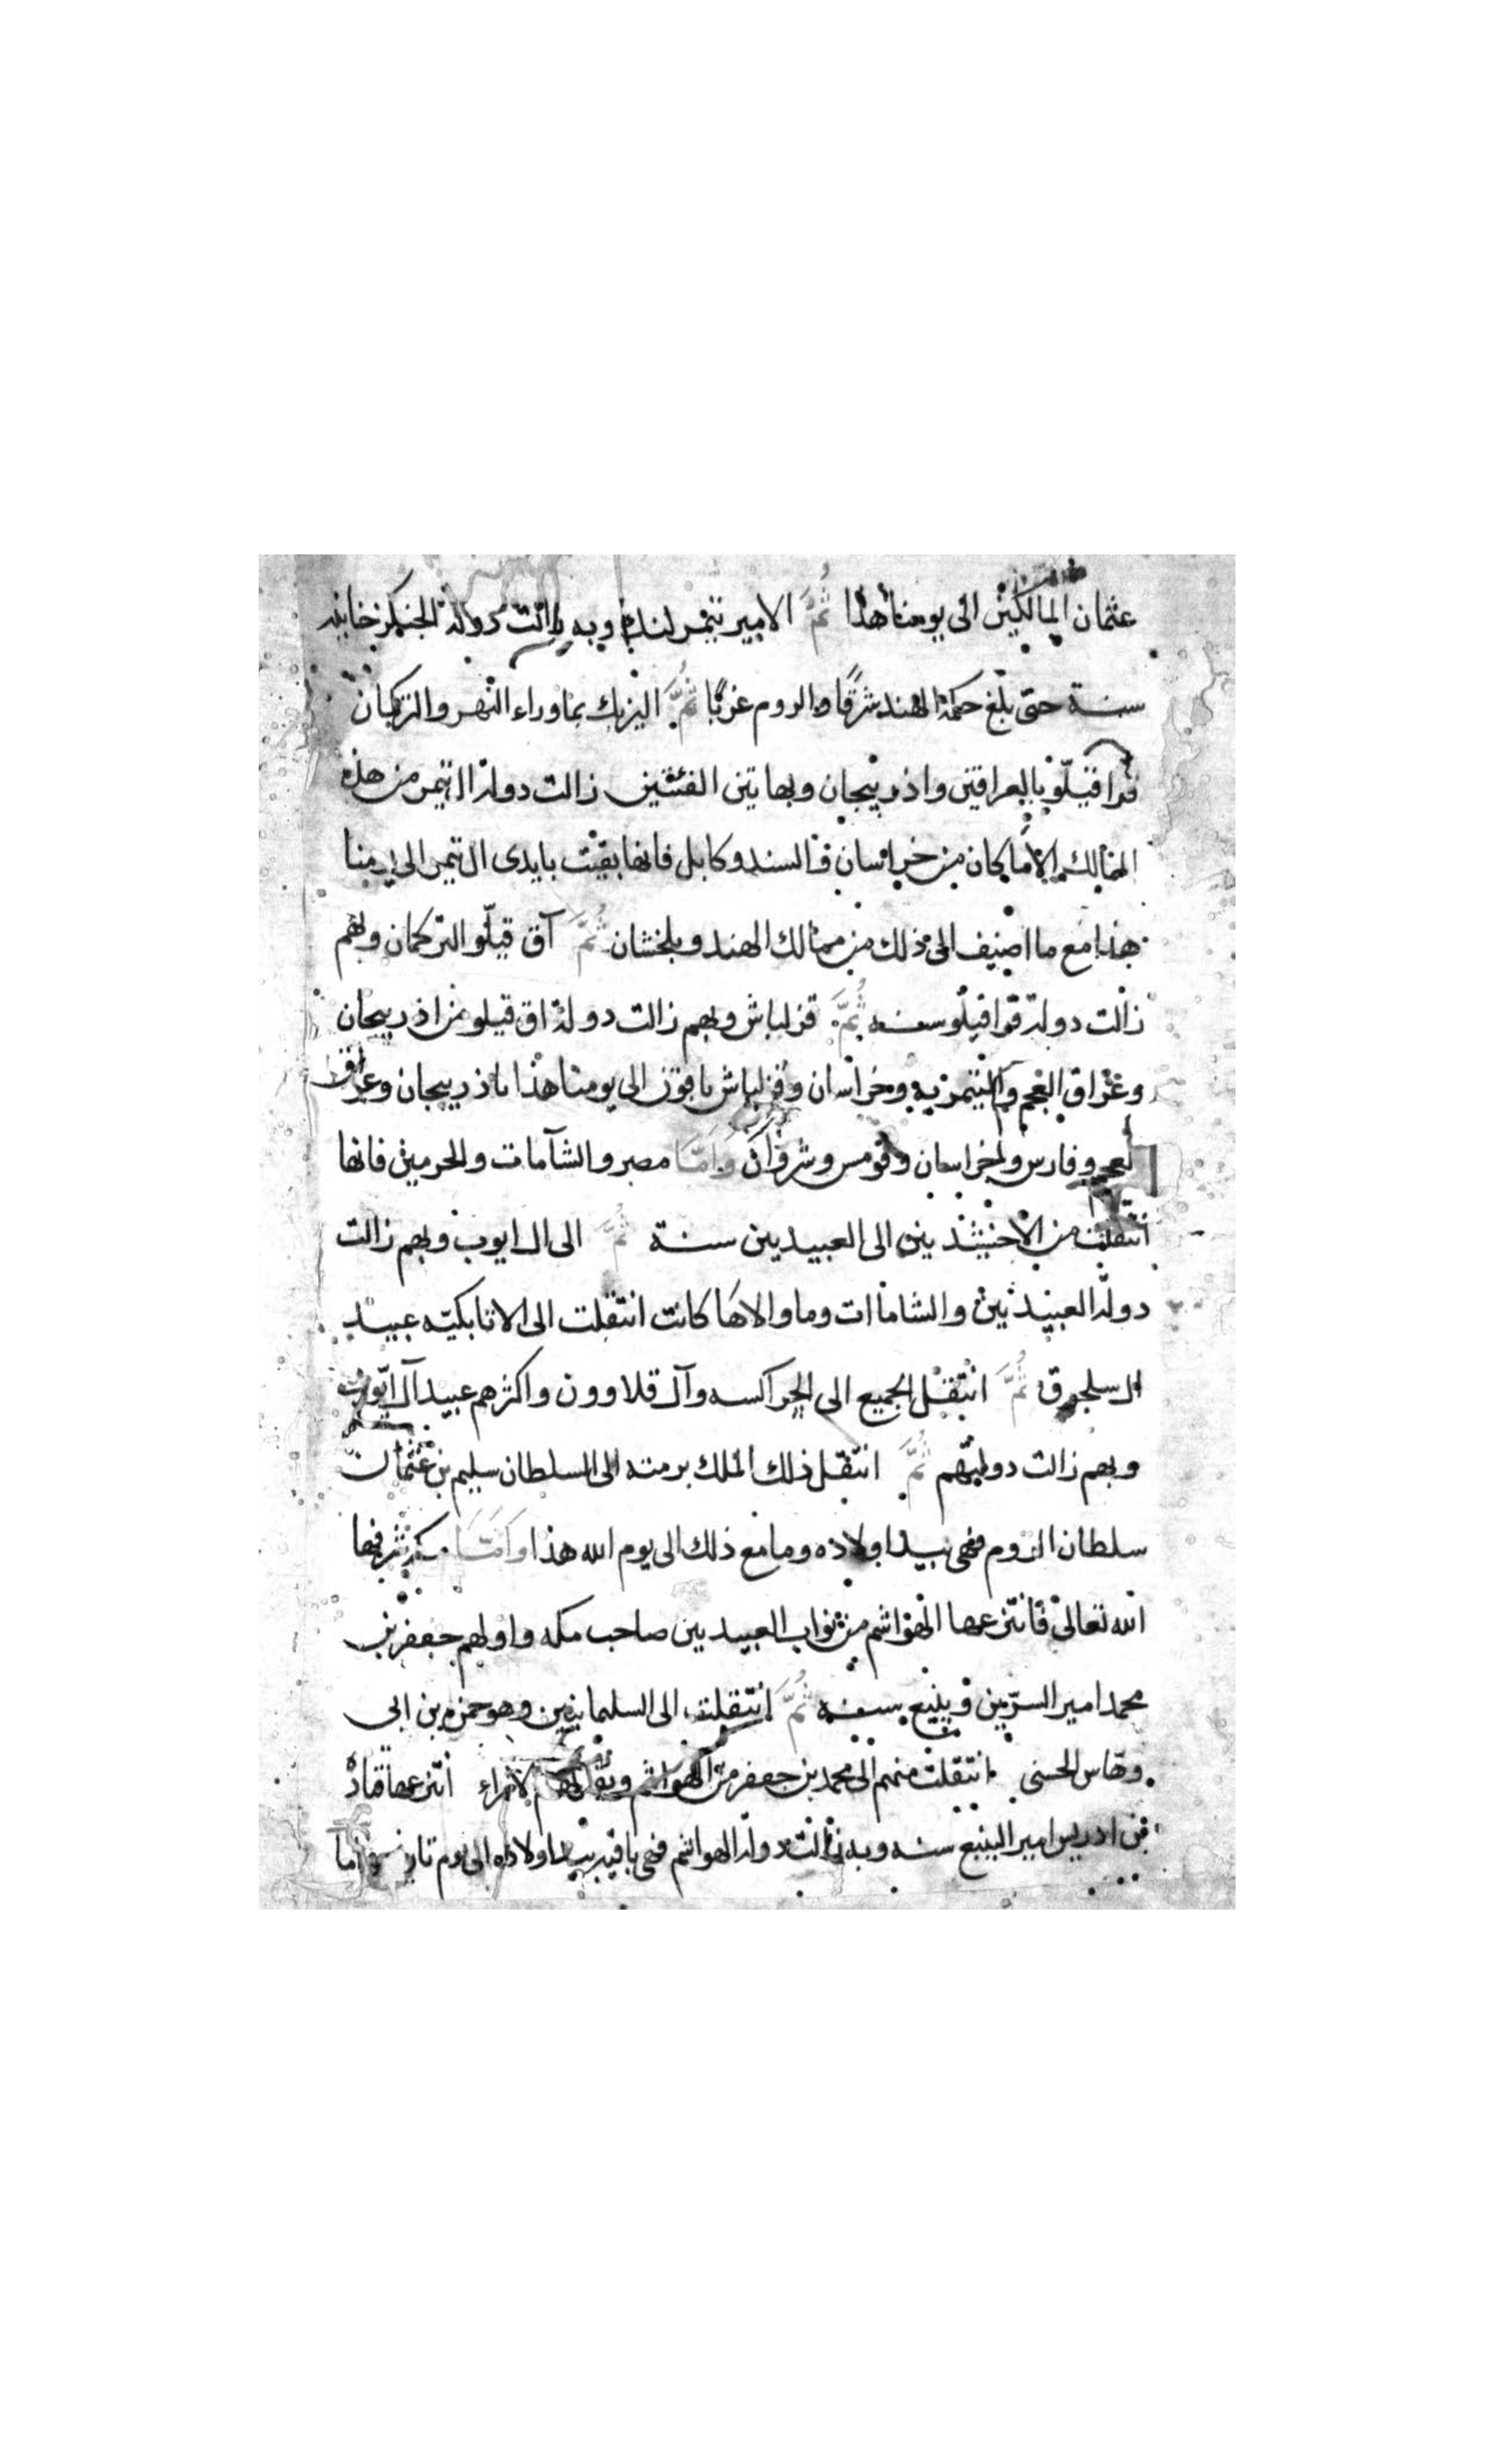 عثمان المالكين الى يومنا هذا ثُمَّ الامير تيمر لنك وبه زالت دولة الجنكز خانيه
سنة حتى بلغ حكمه الهند شرقًا والروم غربًا ثُمَّ اليزبك بماوراء النهر والتركمان
قرا قيلّو بالعراقين واذربيجان وبهاتين الفئتين زالت دولة ال تيمر من هذه
الممالك الا ما كان من خراسان والسند وكابل فانها بقيت بايدى ال تيمر الى يومنا
هذا مع ما اضيف الى ذلك من ممالك الهند وبلخشان ثُمَّ آق قيلّو التركمان وبهم
زالت دولة قرا قيلو سنه ثُمَّ قزلباش وبهم زالت دولة اق قيلو من اذربيجان
وعراق العجم والتيمريه وخراسان وقزلباش باقون الى يومنا هذا باذربيجان وعراق
لعجم وفارس وخراسان وقومس وشروان وَاَمَّا مصر والشآمات والحرمين فانها
انتقلت من الاخشيذيين الى العبيديين سنة ثُمَّ الى ال ايوب وبهم زالت
دولة العبيديين والشامات وما والاها كانت انتقلت الى الاتابكيّه عبيد
ال سلجوق ثُمَّ انتقل الجميع الى الجراكسه وآل قلاوون واكثرهم عبيد آل ايّوب
وبهم زالت دولتهم ثُمَّ انتقل ذلك الملك برمته الى السلطان سليم بن عثمان
سلطان الروم فهى بيد اولاده وما مع ذلك الى يوم الله هذا وَاَمَّا مكه شرفها
الله تعالى فانتزعها الهواشم من نواب العبيديين صاحب مكه واولهم جعفر بن
محمد امير السرّين وينبع سنه ثُمَّ انتقلت الى السليمانيين وهو حمزه بن ابى
وهّاس الحسنى انتقلت منهم الى محمد بن جعفر من الهواشم ويقال لهم الامراء انتزعها قتادة
بن ادريس امير الينبع سنه وبه زالت دولة الهواشم فهى باقيه بيد اولاده الى يوم واما